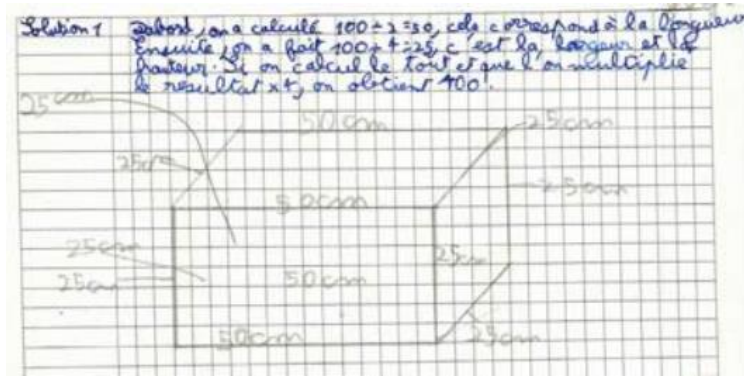 Solution 1 Dabord, on a calculé 100÷2=50, cela correspond à la longueur
Ensuite, on a fait 100÷4=25, c'est la largeur et la
hauteur. Si on calcul le tout et que l'on multiplie
le résultat x4, on obtient 400.
25cm
50cm
25cm
25cm
25cm
50cm
25cm
25cm
25cm
50cm
50cm
25cm